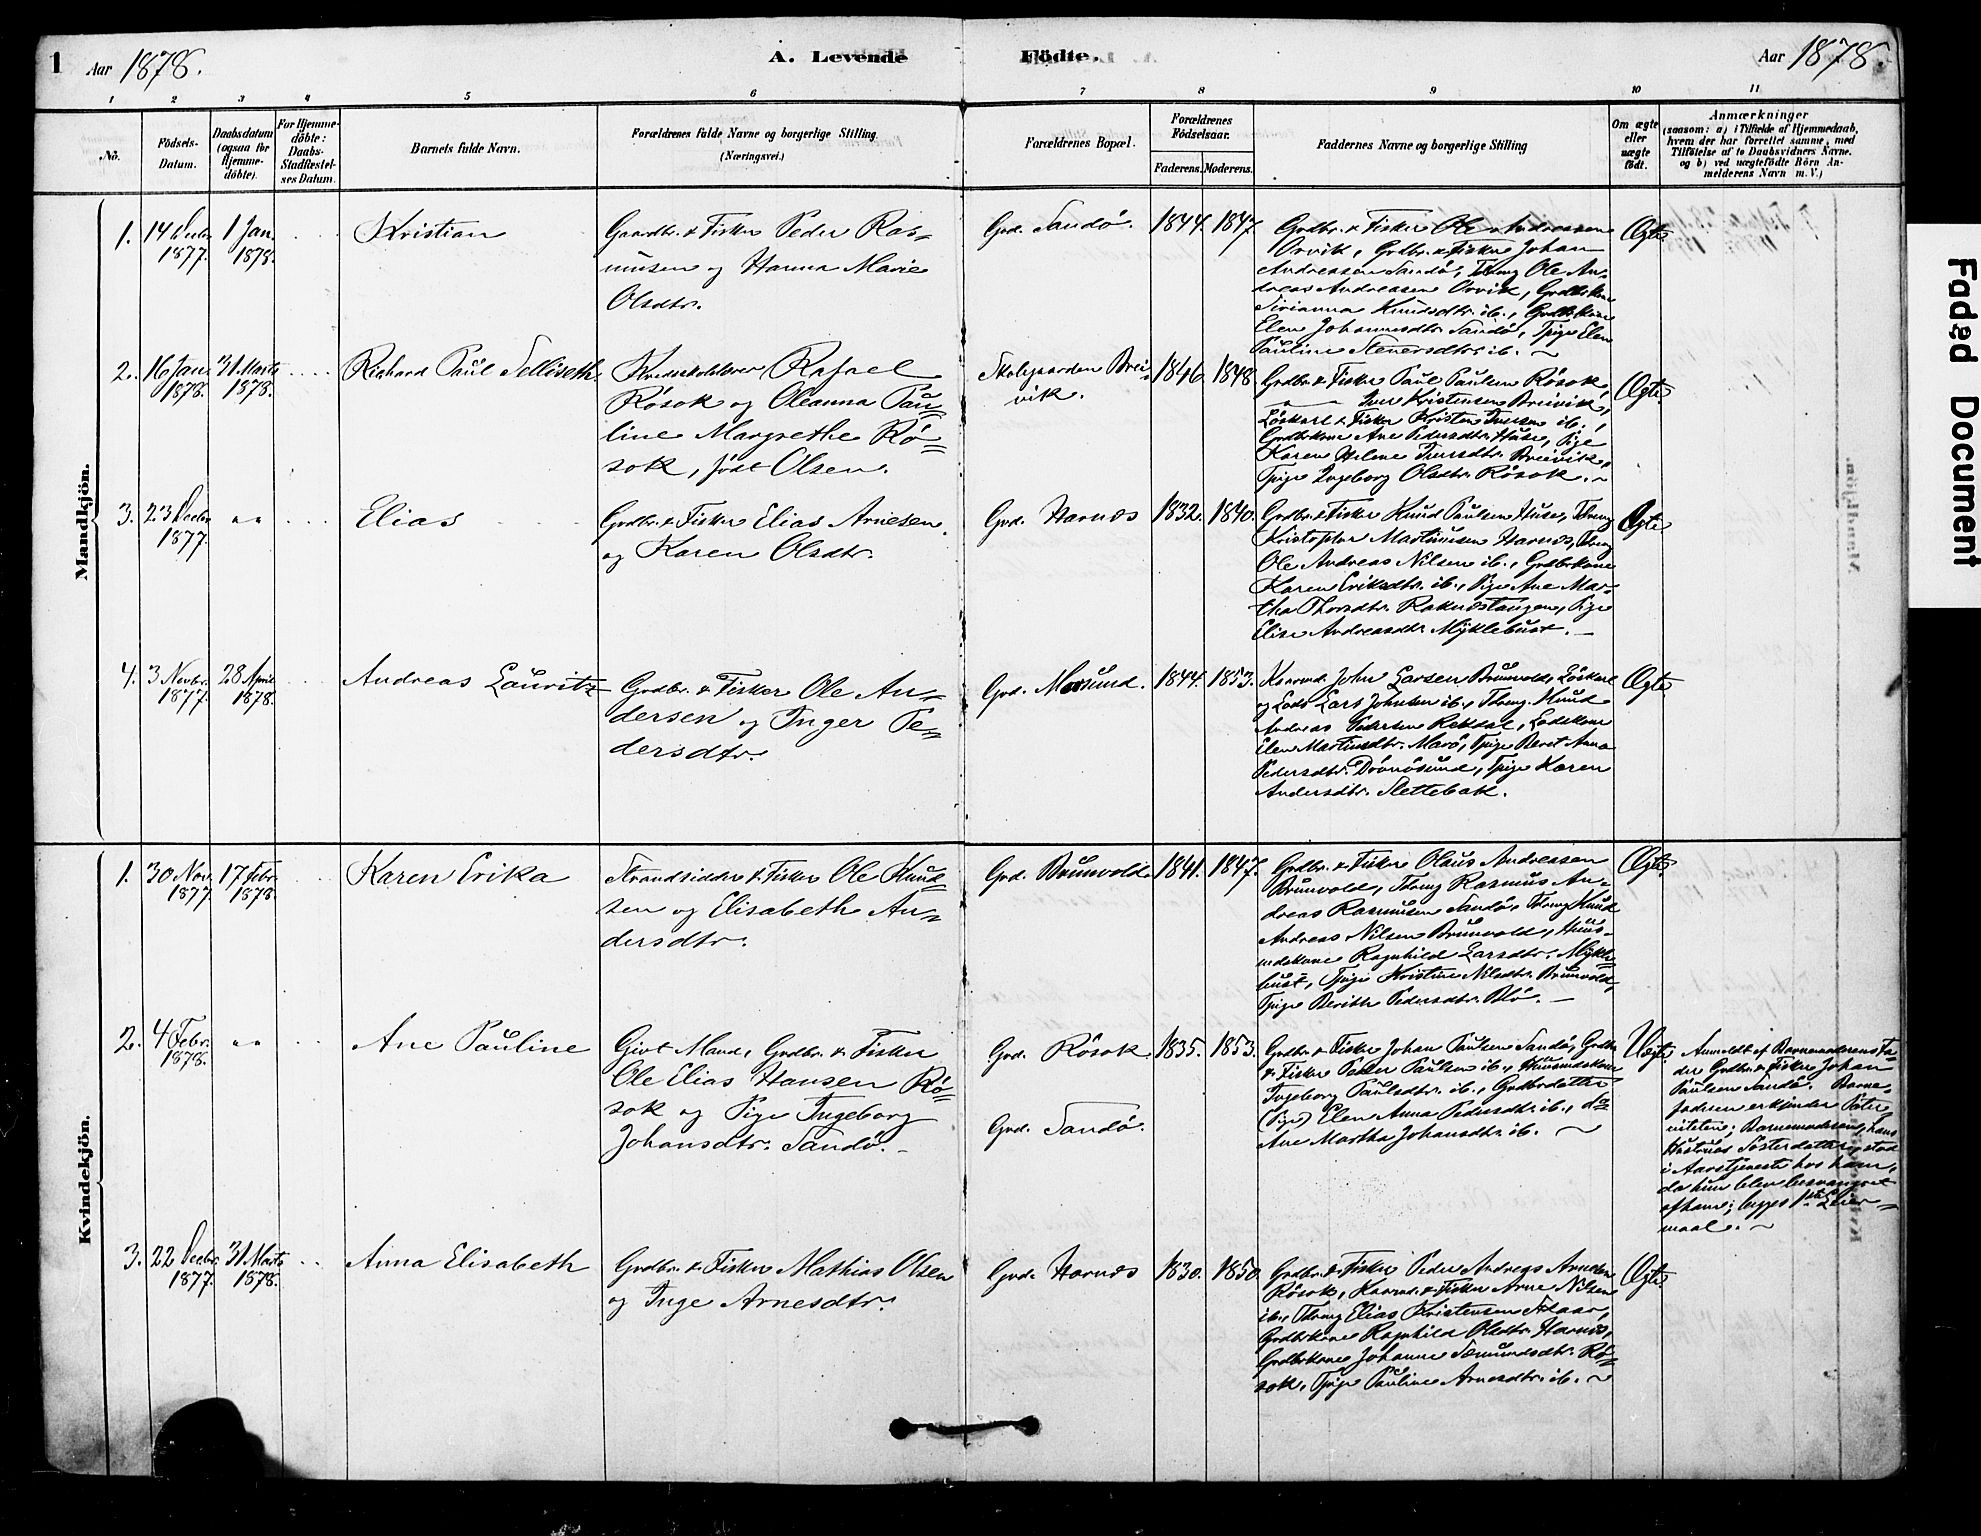 1 Aar 1878. A. Levende Födte. Aar 1878.
1 2 3 4 5 6 7 8 9 10 11
No.
Födsels-
Datum.
Daabsdatum
(ogsaa for
Hjemme-
döbte).
For Hjemme-
döbte:
Daabs-
Stadfæstel-
ses Datum.
Barnets fulde Navn.
Forældrenes fulde Navne og borgerlige Stilling.
(Næringsvei.)
Forældrenes Bopæl.
Forældrenes
Födselsaar.
Faderens. Moderens.
Faddernes Navne og borgerlige Stilling
Om ægte
eller
uægte
födt.
Anmærkninger
(saasom: a) i Tilfælde af Hjemmedaab,
hvem der har forrettet samme, med
Tilföielse af to Daabsvidners Navne.
og b) ved uægtefödte Börn An-
melderens Navn m. V.)
Mandkjön.
1.
14 Decbr.
1877.
1 Jan.
1878.
Kristian
Gaardbr. & Fisker Peder Ras-
musen og Hanna Marie
Olsdtr.
Grd. Sandö.
1844. 1847.
Grdbr. & Fisker Ole Andreasen
Orvik, Grdbr. & Fisker Johan
Andreasen Sandö, Tdreng Ole An-
dreas Andreasen Orvik, Grdbrkone
Sirianna Knudsdtr. ib., Grdbrkone
Elen Johannesdtr. Sandö, Tpige Elen
Pauline Stenersdtr. ib.
Ægte
2.
16 Jan.
1878.
31 Marts
1878.
Richard Paul Sellöseth.
Kredsskolelærer Rafael
Rösok og Oleanna Pau-
line Margrethe Rö-
sok, födt Olsen.
Skolegaarden Brei-
vik.
1846. 1848.
Grdbr. & Fisker Paul Paulsen Rösok,
Iver Kristensen Breivik,
Löskarl & Fisker Kristen Iversen ib.,
Grdbrkone Ane Pedersdtr. Huse, Pige
Karen Helene Iversdtr. Breivik,
Tpige Ingeborg Olsdtr. Rösok.
Ægte.
3.
23 Decbr.
1877.
" "
Elias
Grdbr. & Fisker Elias Arnesen
og Karen Olsdtr.
Grd. Harnös
1832. 1840.
Grdbr. & Fisker Knud Paulsen Huse, Tdreng
Kristopher Martinusen Harnös, Tdreng
Ole Andreas Nilsen ib., Grdbrkone
Karen Eriksdtr. ib., Pige Ane Mar-
tha Thorsdtr. Raknestangen, Pige
Elise Andreasdtr. Myklebust.
Ægte
4.
3 Novbr.
1877.
28 April
1878.
Andreas Lauritz
Grdbr. & Fisker Ole An-
dersen og Inger Pe-
dersdtr.
Grd. Mosund.
1844. 1853.
Kaarmd. John Larsen Brunvold, Löskarl
og Lods Lars Johnsen ib., Tdreng Knud
Andreas Pedersen Rekdal, Lodskone
Elen Martinusdtr. Marö, Tpige Beret Anna
Pedersdtr. Drönösund, Tpige Karen
Andersdtr. Slettebak.
Ægte
Kvindekjön.
1.
30 Nov.
1877.
17 Febr.
1878.
Karen Erika
Strandsidder & Fisker Ole Knud-
sen og Elisabeth An-
dersdtr.
Grd. Brunvold.
1841. 1847.
Grdbr. & Fisker Olaus Andreasen
Brunvold, Tdreng Rasmus An-
dreas Rasmusen Sandö, Tdreng Knud
Andreas Nilsen Brunvold, Huus-
mdskone Ragnhild Larsdtr. Mykle-
bust, Tpige Kristine Nilsdtr. Brunvold,
Tpige Berithe Pedersdtr. Blö.
Ægte.
2.
4 Febr.
1878.
" "
Ane Pauline
Givt Mand, Grdbr. & Fisker
Ole Elias Hansen Rö-
sok og Pige Ingeborg
Johansdtr. Sandö.
Grd. Rösok
Grd. Sandö.
1835. 1853.
Grdbr. & Fisker Johan Paulsen Sandö, Grdbr.
& Fisker Peder Paulsen ib., Huusmdskone
Ingeborg Paulsdtr. ib., Grdbrdatter
(Pige) Elen Anna Pedersdtr. ib., do
Ane Martha Johansdtr. ib.
Uægte.
Anmeldt af Barnemoderens Fa-
der Grdbr. & Fisker Johan
Paulsen Sandö. Barne-
faderen erkjender Pater-
niteten; Barnemoderen, hans
Hustrues Sösterdatter, stod
i Aarstjeneste hos ham,
da hun blev besvangret
af ham; begges 1ste Leier-
maal.
3.
22 Decbr.
1877.
31 Marts
1878.
Anna Elisabeth
Grdbr. & Fisker Mathias Olsen
og Inge Arnesdtr.
Grd. Harnös
1830. 1850.
Grdbr. & Fisker Peder Andreas Arnesen
Rösok, Kaarmd. & Fisker Arne Nilsen
ib., Tdreng Elias Kristensen Akaar,
Grdbrkone Ragnhild Olsdtr. Harnös,
Grdbrkone Johanne Sæmundsdtr. Rö-
sok, Tpige Pauline Arnesdtr. ib.
Ægte.
Faded Document